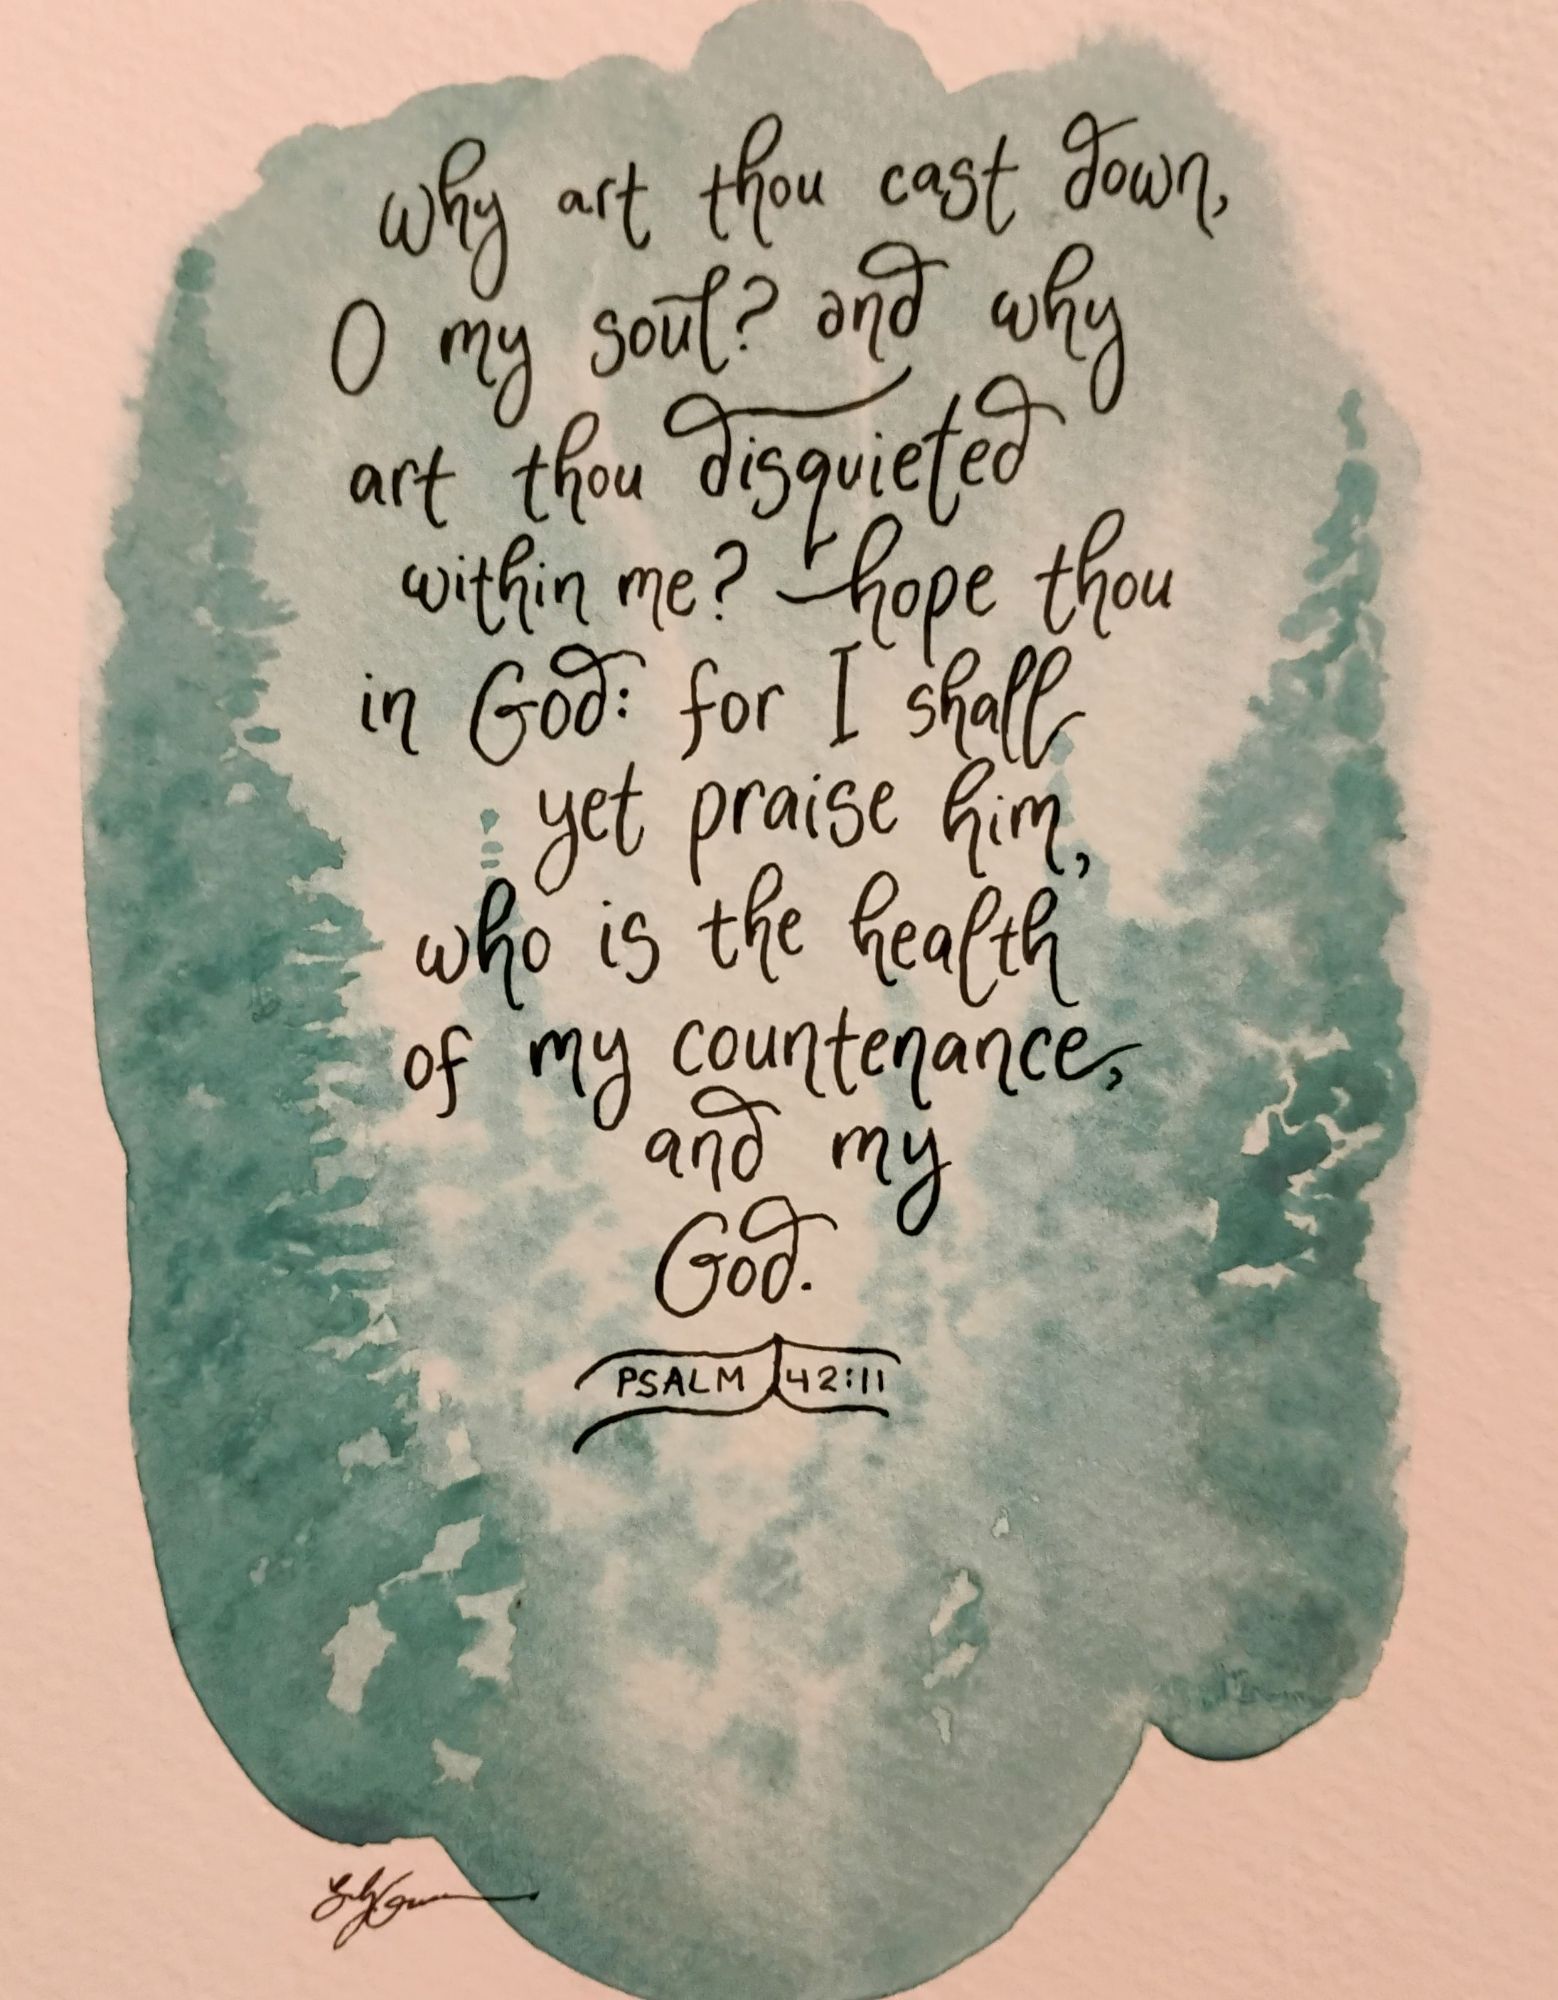 why art thou cast down,
O my soul? and why
art thou disquieted
within me? hope thou
in God: for I shall
yet praise him,
who is the health
of my countenance,
and my
God.
PSALM 42:11